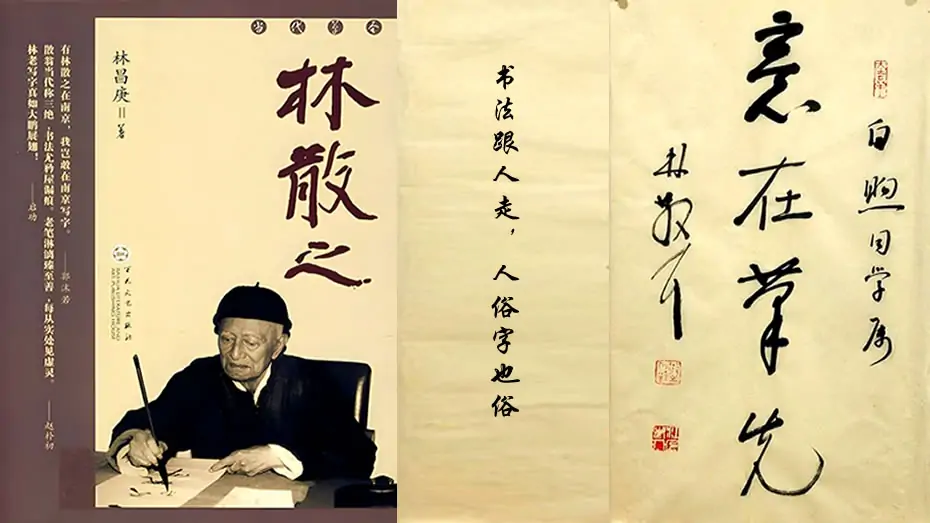 当代草圣
林散之
林昌庚 著
百花文艺出版社
BAIHUA LITERATURE AND
ART PUBLISHING HOUSE
有林散之在南京，我岂敢在南京写字。——郭沫若
散翁当代称三绝，书法尤矜屋漏痕。老笔淋漓臻至善，每从实处见虚灵。——赵朴初
林老写字真如大鹏展翅！——启功
书法跟人走，人俗字也俗
白煦同学属
意在笔先
林散耳